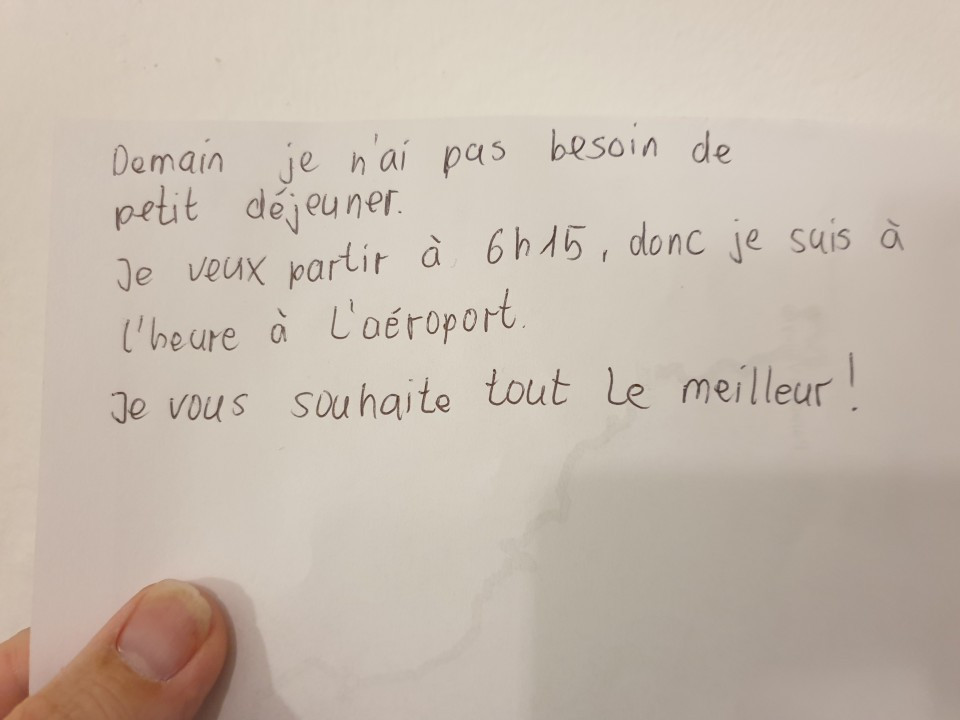 Demain je n'ai pas besoin de
petit déjeuner.
Je veux partir à 6h15, donc je suis à
l'heure à L'aéroport.
Je vous souhaite tout le meilleur!